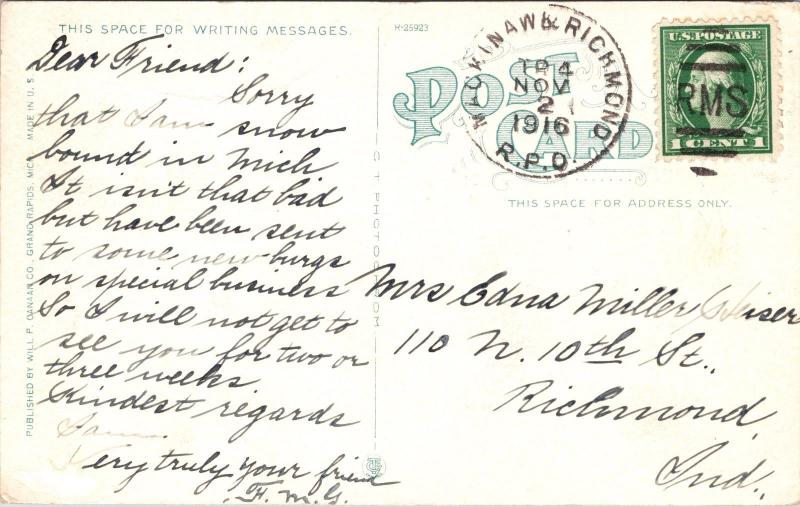 THIS SPACE FOR WRITING MESSAGES.
Dear Friend:
Sorry
that I am snow
bound in Mich
It isn't that bad
but have been sent
to some new burgs
on special business
So I will not get to
see you for two or
three weeks
Kindest regards
I am
Very truly your friend
F. M. G.
PUBLISHED BY WILL P. CANAAN CO., GRAND RAPIDS, MICH. MADE IN U. S.
H-25923
POST CARD
MACKINAW & RICHMOND
TR 4
NOV
2
1916
R.P.O.
U.S. POSTAGE
RMS
1 CENT 1
THIS SPACE FOR ADDRESS ONLY.
Mrs Edna Miller
110 N. 10th St.,
Richmond
Ind.